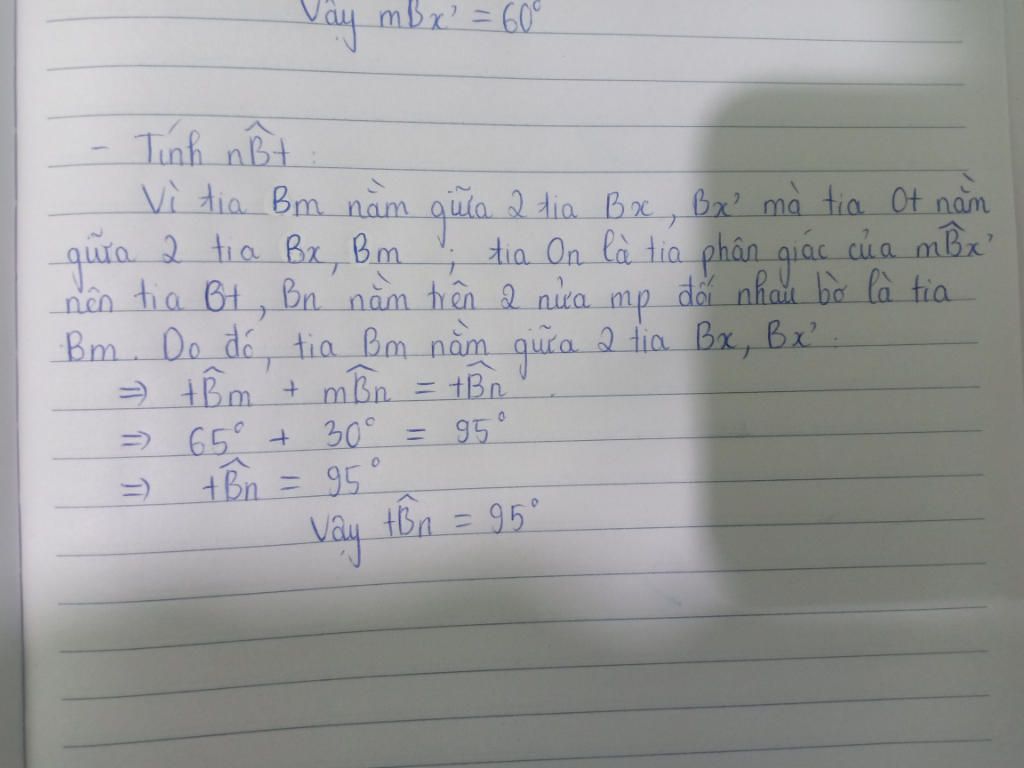 Vậy mBx' = 60°
- Tính nB̂t :
Vì tia Bm nằm giữa 2 tia Bx, Bx' mà tia Ot nằm
giữa 2 tia Bx, Bm ; tia On là tia phân giác của mB̂x'
nên tia Bt, Bn nằm trên 2 nửa mp đối nhau bờ là tia
Bm. Do đó, tia Bm nằm giữa 2 tia Bx, Bx'.
⇒ tB̂m + mB̂n = tB̂n .
⇒ 65° + 30° = 95°
⇒ tB̂n = 95°
Vậy tB̂n = 95°